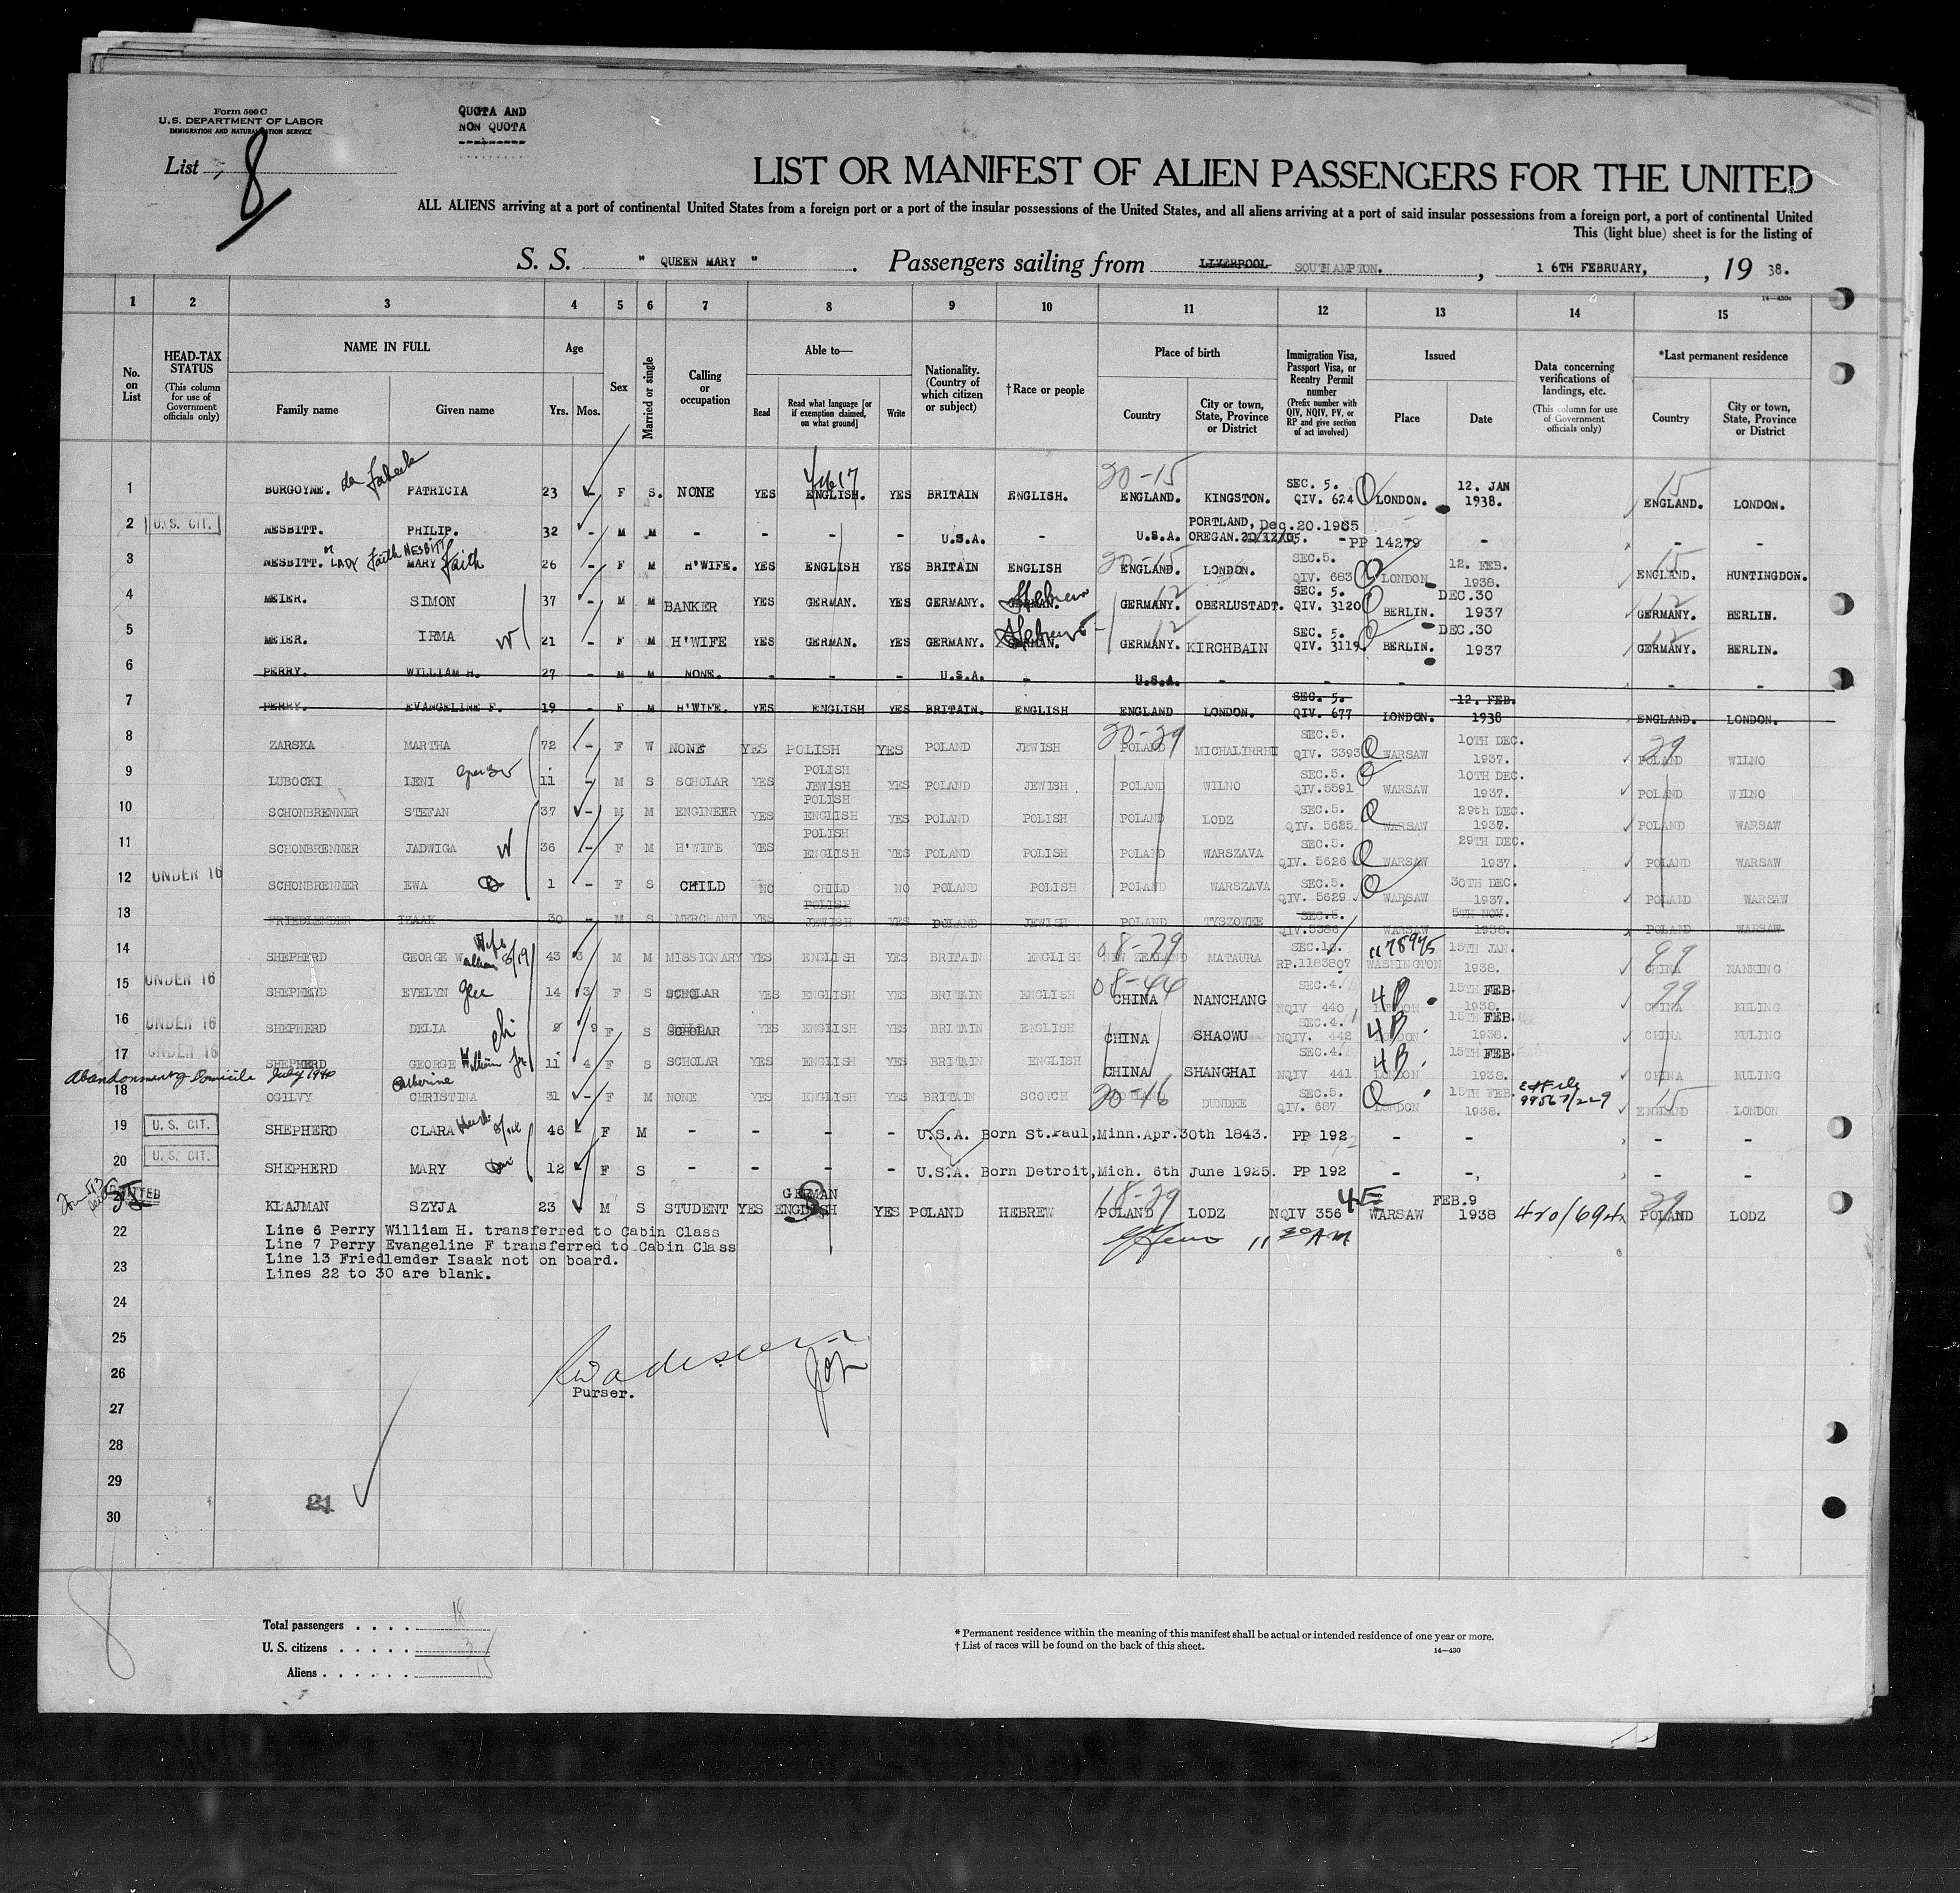 Form 500 C
U.S. DEPARTMENT OF LABOR
IMMIGRATION AND NATURALIZATION SERVICE
QUOTA AND
NON QUOTA
List 8
LIST OR MANIFEST OF ALIEN PASSENGERS FOR THE UNITED
ALL ALIENS arriving at a port of continental United States from a foreign port or a port of the insular possessions of the United States, and all aliens arriving at a port of said insular possessions from a foreign port, a port of continental United
This (light blue) sheet is for the listing of
S. S. " QUEEN MARY " . Passengers sailing from LIVERPOOL SOUTHAMPTON. , 1 6TH FEBRUARY, , 19 38.
14—430c
1 2 3 4 5 6 7 8 9 10 11 12 13 14 15
No. on List
HEAD-TAX STATUS (This column for use of Government officials only)
NAME IN FULL Family name Given name
Age Yrs. Mos.
Sex
Married or single
Calling or occupation
Able to— Read Read what language [or if exemption claimed, on what ground] Write
Nationality. (Country of which citizen or subject)
†Race or people
Place of birth Country City or town, State, Province or District
Immigration Visa, Passport Visa, or Reentry Permit number (Prefix number with QIV, NQIV, PV, or RP and give section of act involved)
Issued Place Date
Data concerning verifications of landings, etc. (This column for use of Government officials only)
*Last permanent residence Country City or town, State, Province or District
1 BURGOYNE. PATRICIA 23 - F S. NONE YES ENGLISH. YES BRITAIN ENGLISH. 20-15 ENGLAND. KINGSTON. SEC. 5. QIV. 624 LONDON. 12. JAN 1938. 15 ENGLAND. LONDON.
2 U.S. CIT. NESBITT. PHILIP. 32 - M M - - - - U.S.A. - U.S.A. PORTLAND, OREGAN. Dec. 20.1905 20/12/05. - PP 14279 - - -
3 NESBITT. or LADY Faith NESBITT MARY Faith 26 - F M H'WIFE. YES ENGLISH YES BRITAIN ENGLISH 20-15 ENGLAND. LONDON. SEC.5. QIV. 683 LONDON 12. FEB. 1938. 15 ENGLAND. HUNTINGDON.
4 MEIER. SIMON 37 - M M BANKER YES GERMAN. YES GERMANY. GERMAN. Hebrew 12 GERMANY. OBERLUSTADT. SEC. 5. QIV. 3120 BERLIN. DEC.30 1937 12 GERMANY. BERLIN.
5 MEIER. IRMA W 21 - F M H'WIFE YES GERMAN. YES GERMANY. GERMAN. Hebrew 12 GERMANY. KIRCHBAIN SEC. 5. QIV. 3119 BERLIN. DEC.30 1937 12 GERMANY. BERLIN.
6 PERRY. WILLIAM H. 27 - M M NONE. - - - U.S.A. - U.S.A. - - - - - -
7 PERRY. EVANGELINE F. 19 - F M H'WIFE. YES ENGLISH YES BRITAIN. ENGLISH ENGLAND LONDON. SEC. 5. QIV. 677 LONDON. 12. FEB. 1938 ENGLAND. LONDON.
8 ZARSKA MARTHA 72 - F W NONE YES POLISH YES POLAND JEWISH 20-29 POLAND MICHALIRRHI SEC.5. QIV. 3393 WARSAW 10TH DEC. 1937. 29 POLAND WILNO
9 LUBOCKI LENI 11 - M S SCHOLAR YES POLISH JEWISH YES POLAND JEWISH POLAND WILNO SEC.5. QIV.5591 WARSAW 10TH DEC. 1937. POLAND WILNO
10 SCHONBRENNER STEFAN 37 - M M ENGINEER YES POLISH ENGLISH YES POLAND POLISH POLAND LODZ SEC.5. QIV. 5625 WARSAW 29th DEC. 1937. POLAND WARSAW
11 SCHONBRENNER JADWIGA W 36 - F M H'WIFE YES POLISH ENGLISH YES POLAND POLISH POLAND WARSZAVA SEC.5. QIV. 5626 WARSAW 29TH DEC. 1937. POLAND WARSAW
12 UNDER 16 SCHONBRENNER EWA 1 - F S CHILD NO CHILD NO POLAND POLISH POLAND WARSZAVA SEC.5. QIV. 5629 WARSAW 30TH DEC. 1937. POLAND WARSAW
13 FRIEDLEMDER IZAAK 30 - M S MERCHANT YES POLISH JEWISH YES POLAND JEWISH POLAND TYSZOWEE SEC.5. QIV.5386 WARSAW 5TH NOV. 1938. POLAND WARSAW
14 SHEPHERD GEORGE William 43 3 M M MISSIONARY YES ENGLISH YES BRITAIN ENGLISH 08-29 NEW ZEALAND MATAURA SEC.1 RP.1183807 1178975 WASHINGTON 15TH JAN. 1938. 99 CHINA NANKING
15 UNDER 16 SHEPHERD EVELYN 14 3 F S SCHOLAR YES ENGLISH YES BRITAIN ENGLISH 08-44 CHINA NANCHANG SEC.4. NQIV 440 4B LONDON 15TH FEB. 1938. 99 CHINA KULING
16 UNDER 16 SHEPHERD DELIA 9 9 F S SCHOLAR YES ENGLISH YES BRITAIN ENGLISH CHINA SHAOWU SEC.4. NQIV. 442 4B LONDON 15TH FEB. 1938. CHINA KULING
17 UNDER 16 SHEPHERD GEORGE William Jr. 11 4 F S SCHOLAR YES ENGLISH YES BRITAIN ENGLISH CHINA SHANGHAI SEC.4. NQIV 441 4B LONDON 15TH FEB. 1938. CHINA KULING
Abandonment of Domicile July 1940
18 OGILVY Catherine CHRISTINA 31 - F M NONE YES ENGLISH YES BRITAIN SCOTCH 20-16 SCOTLAND DUNDEE SEC.5. QIV. 687 LONDON 15TH FEB. 1938. 15 ENGLAND LONDON
19 U. S. CIT. SHEPHERD CLARA 46 - F M - - - - U.S.A. Born St.Paul,Minn.Apr.30th 1843. PP 192 - - - -
20 U. S. CIT. SHEPHERD MARY 12 F S - - - - U.S.A. Born Detroit,Mich. 6th June 1925. PP 192 - - - -
ADMITTED KLAJMAN SZYJA 23 M S STUDENT YES GERMAN ENGLISH YES POLAND HEBREW 18-29 POLAND LODZ NQIV 356 4E WARSAW FEB.9 1938 29 POLAND LODZ
22 Line 6 Perry William H. transferred to Cabin Class
Line 7 Perry Evangeline F transferred to Cabin Class
23 Line 13 Friedlemder Isaak not on board.
Lines 22 to 30 are blank.
11 30 AM
24
25
26
Purser.
27
28
29
21
30
8
Total passengers . . . . 18
U. S. citizens . . . . . 3
Aliens . . . . . . 15
* Permanent residence within the meaning of this manifest shall be actual or intended residence of one year or more.
† List of races will be found on the back of this sheet.
14—430